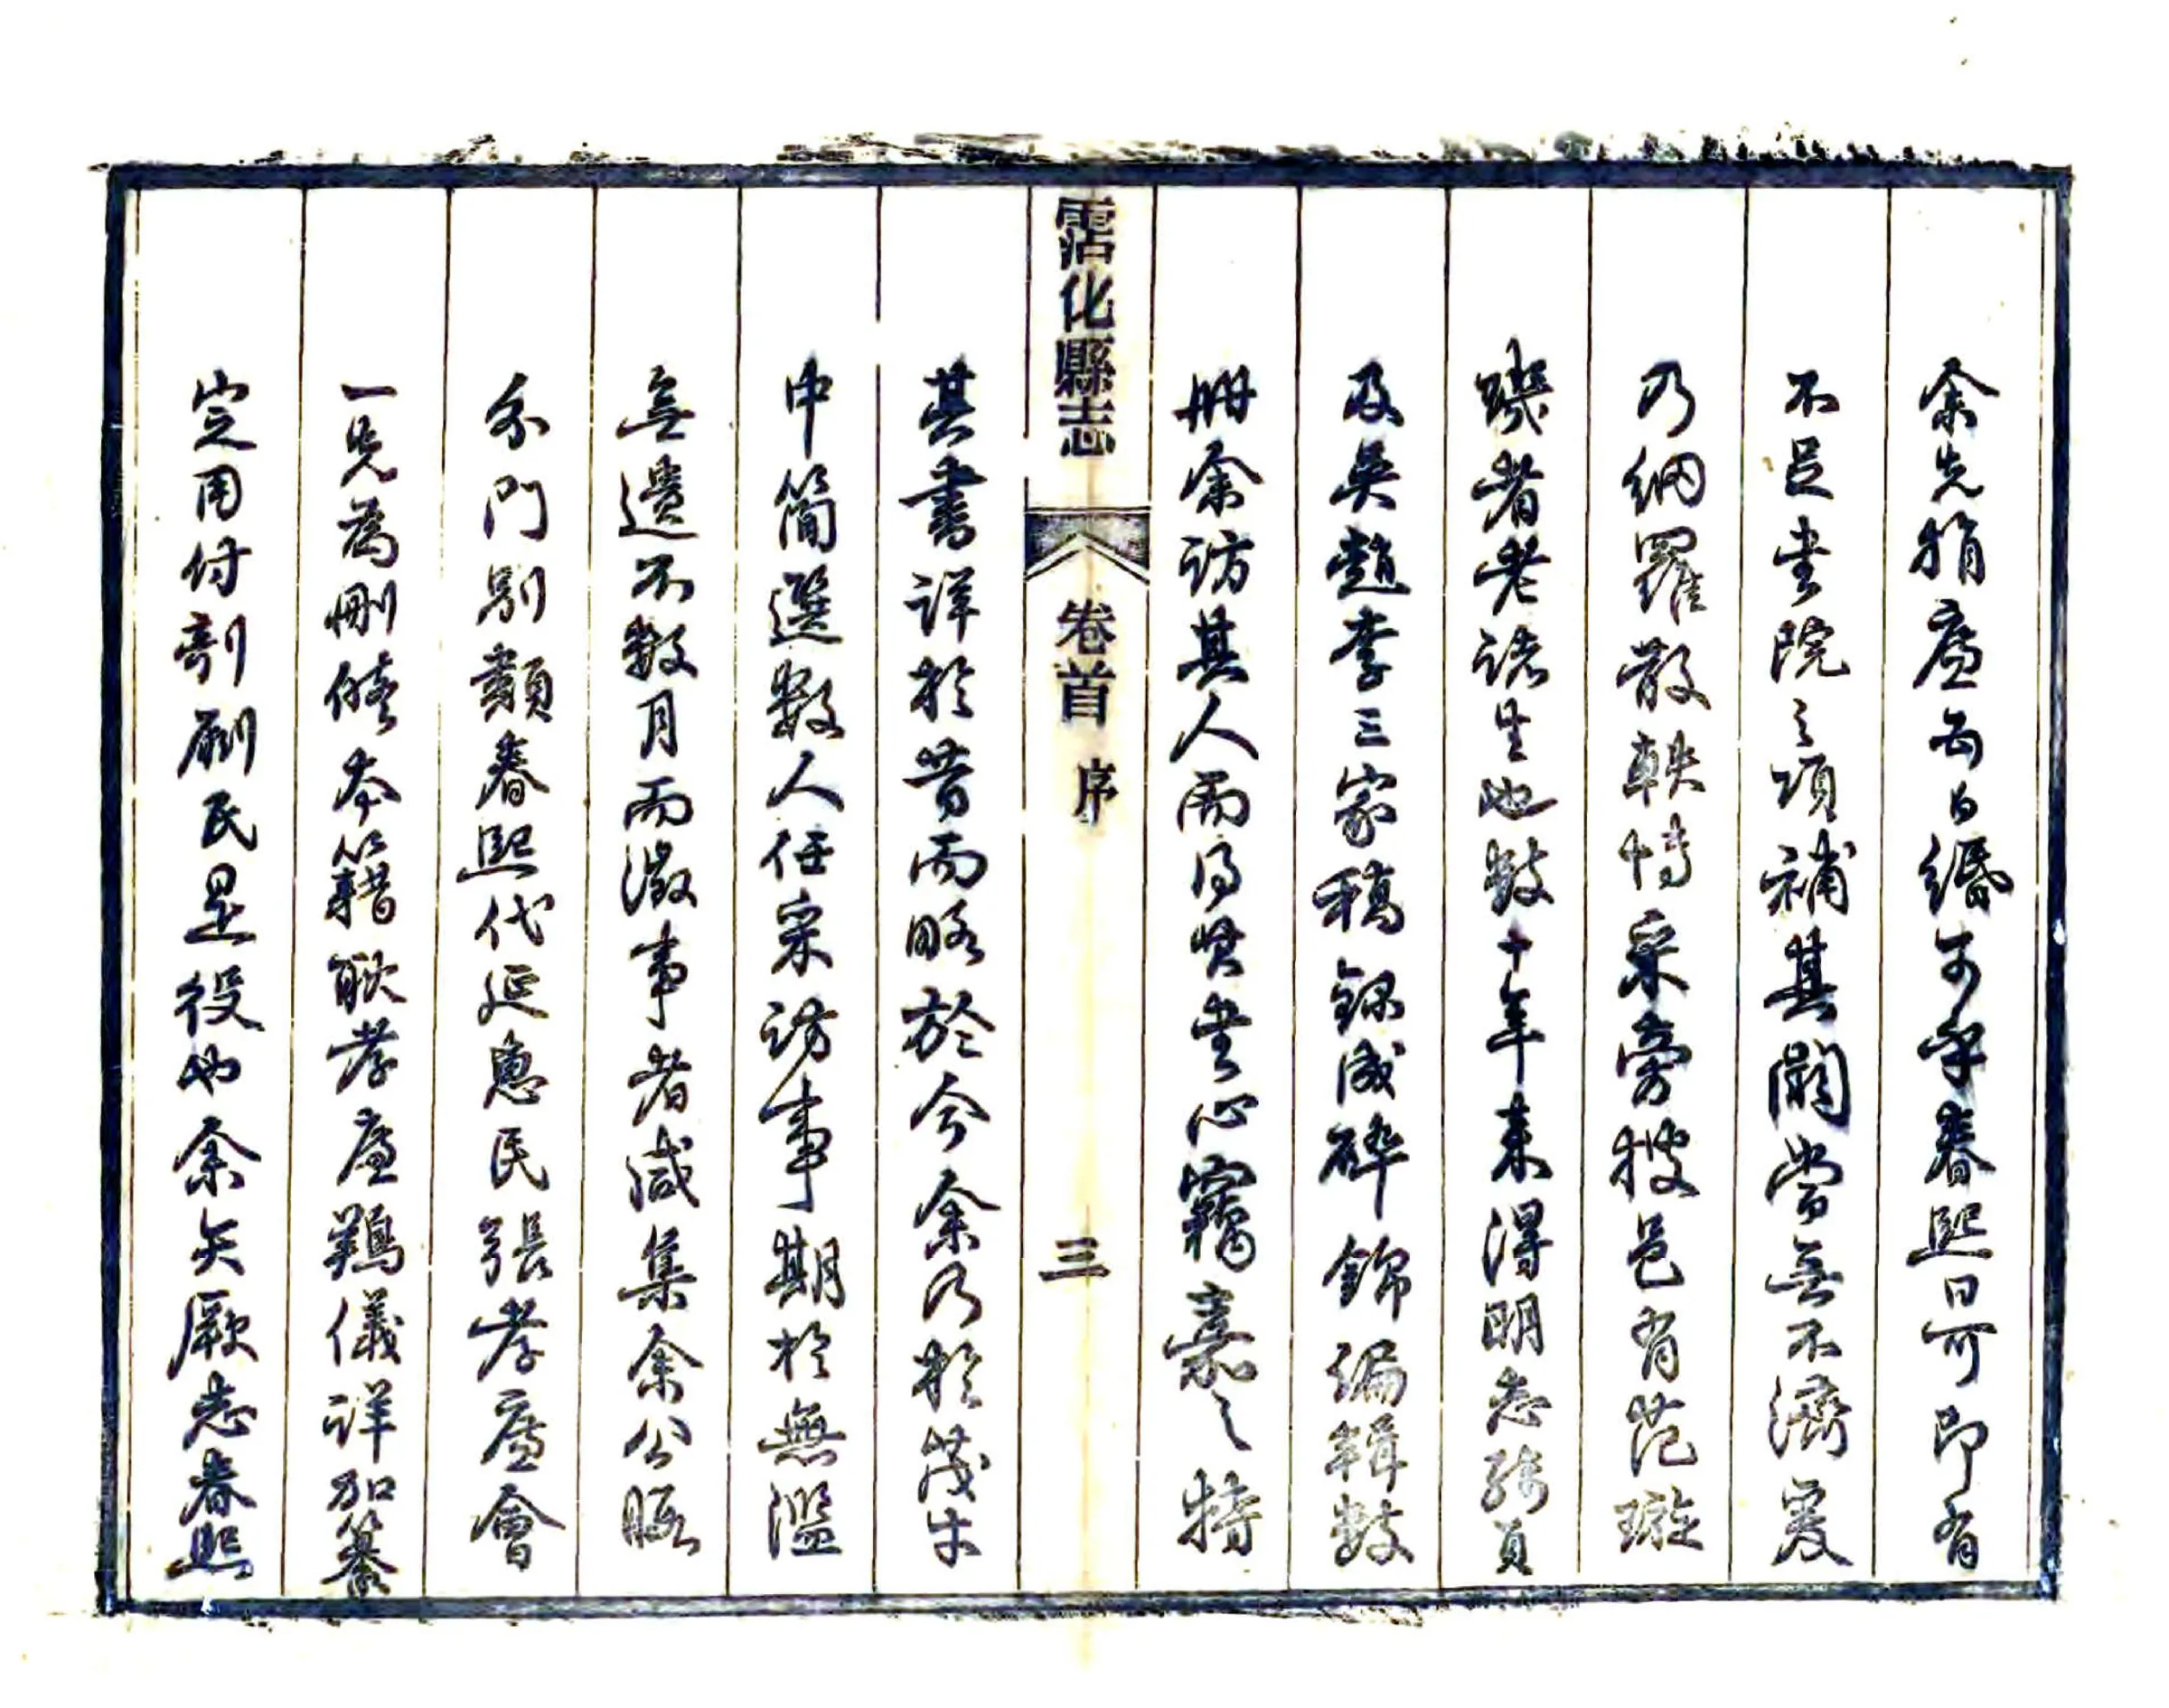 余先捐廉而白緡可乎春熙曰可即有
不足書院之項補其闕當無不濟爰
乃網羅散軼博采旁搜邑有范璇
璣者老諸生也數十年来得明志殘頁
及吳趙李三家稿錄成碎錦編輯數
冊余訪其人而得其書心竊嘉之特
霑化縣志 卷首 序 三
其書詳於昔而略於今余乃於茂才
中簡選數人任采訪事期於無濫
無遺不數月而徵事者咸集余公暇
分門別類春熙代延惠民張孝廉會
一先為刪修本籍耿孝廉鴻儀詳加纂
定用付剞劂民是役也余矢厥志春熙